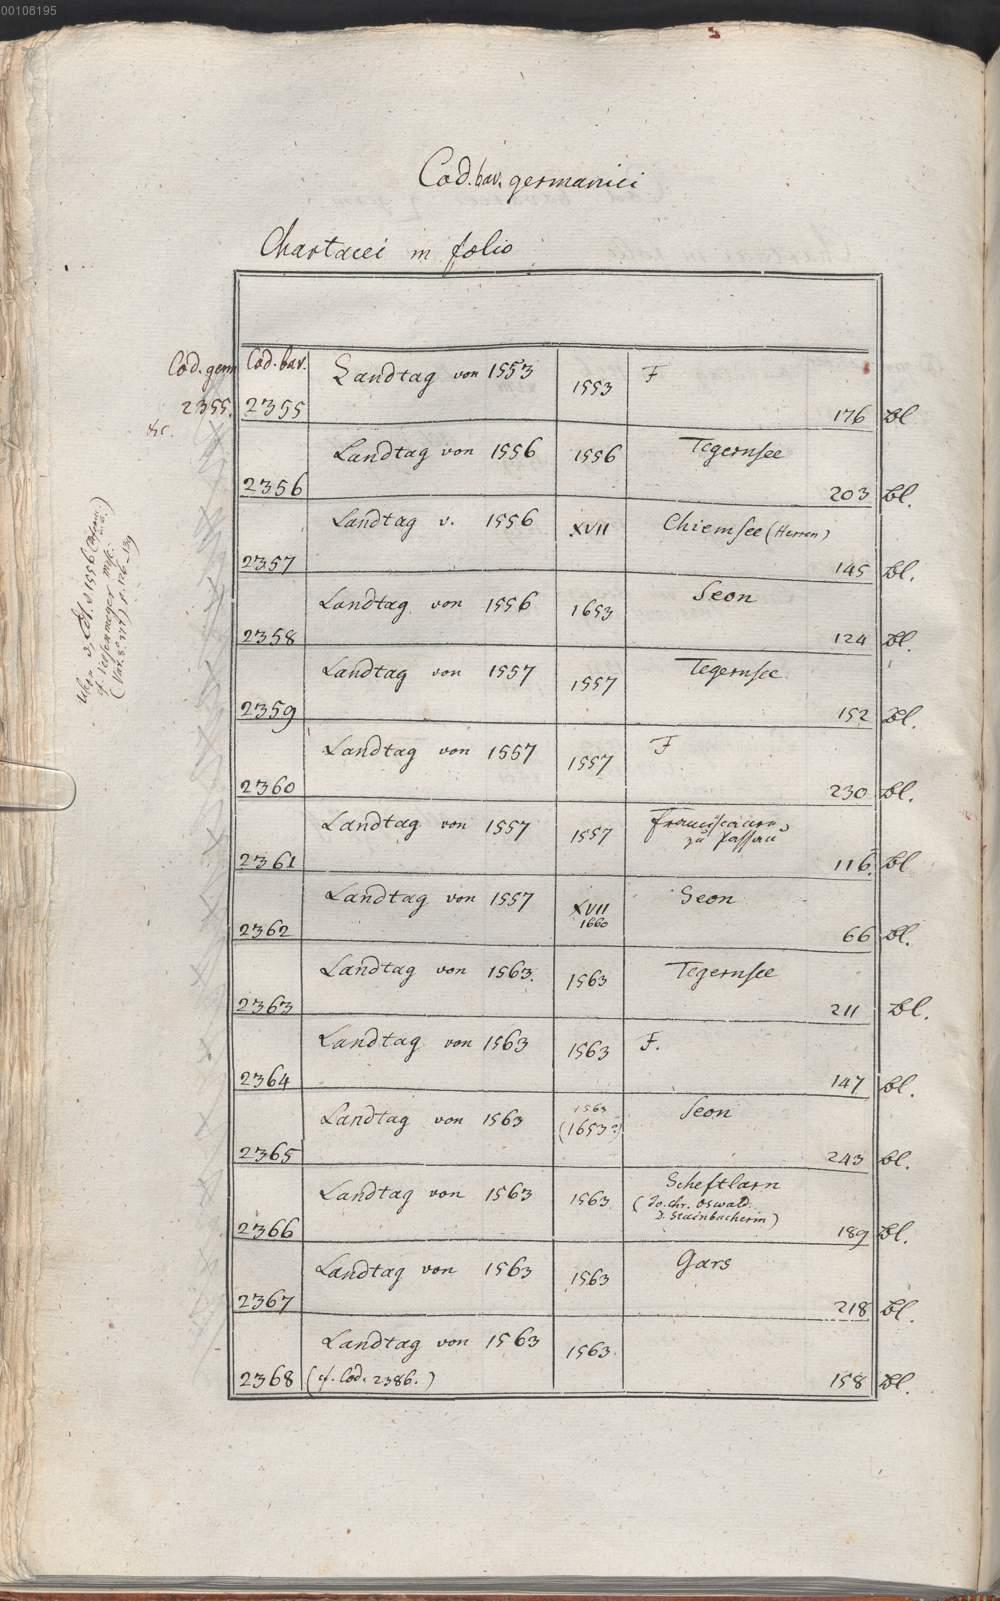 00108195
Cod. bav. germanici
Chartacei in folio
Cod. germ Cod. bav. Landtag von 1553 1553 F
2355. 2355 176 Bl
etc.
Landtag von 1556 1556 Tegernsee
2356 203 Bl.
Landtag v. 1556 XVII Chiemsee (Herren)
2357 145 Bl.
Landtag von 1556 1653 Seon
2358 124 Bl.
Landtag von 1557 1557 Tegernsee
2359 152 Bl.
Landtag von 1557 1557 F
2360 230 Bl.
Landtag von 1557 1557 Franciscaner
zu Passau
2361 116. Bl
Landtag von 1557 XVII Seon
1660
2362 66 Bl.
Landtag von 1563. 1563 Tegernsee
2363 211 Bl.
Landtag von 1563 1563 F.
2364 147 Bl.
Landtag von 1563 1563 Seon
(1653?)
2365 243 Bl.
Landtag von 1563 1563 Scheftlarn
(Jo. Chr. Oswald
D. Stainbacherin)
2366 189 Bl.
Landtag von 1563 1563 Gars
2367 218 Bl.
Landtag von 1563 1563.
2368 (cf. Cod. 2386.) 158 Bl.
1556
p. 126-139